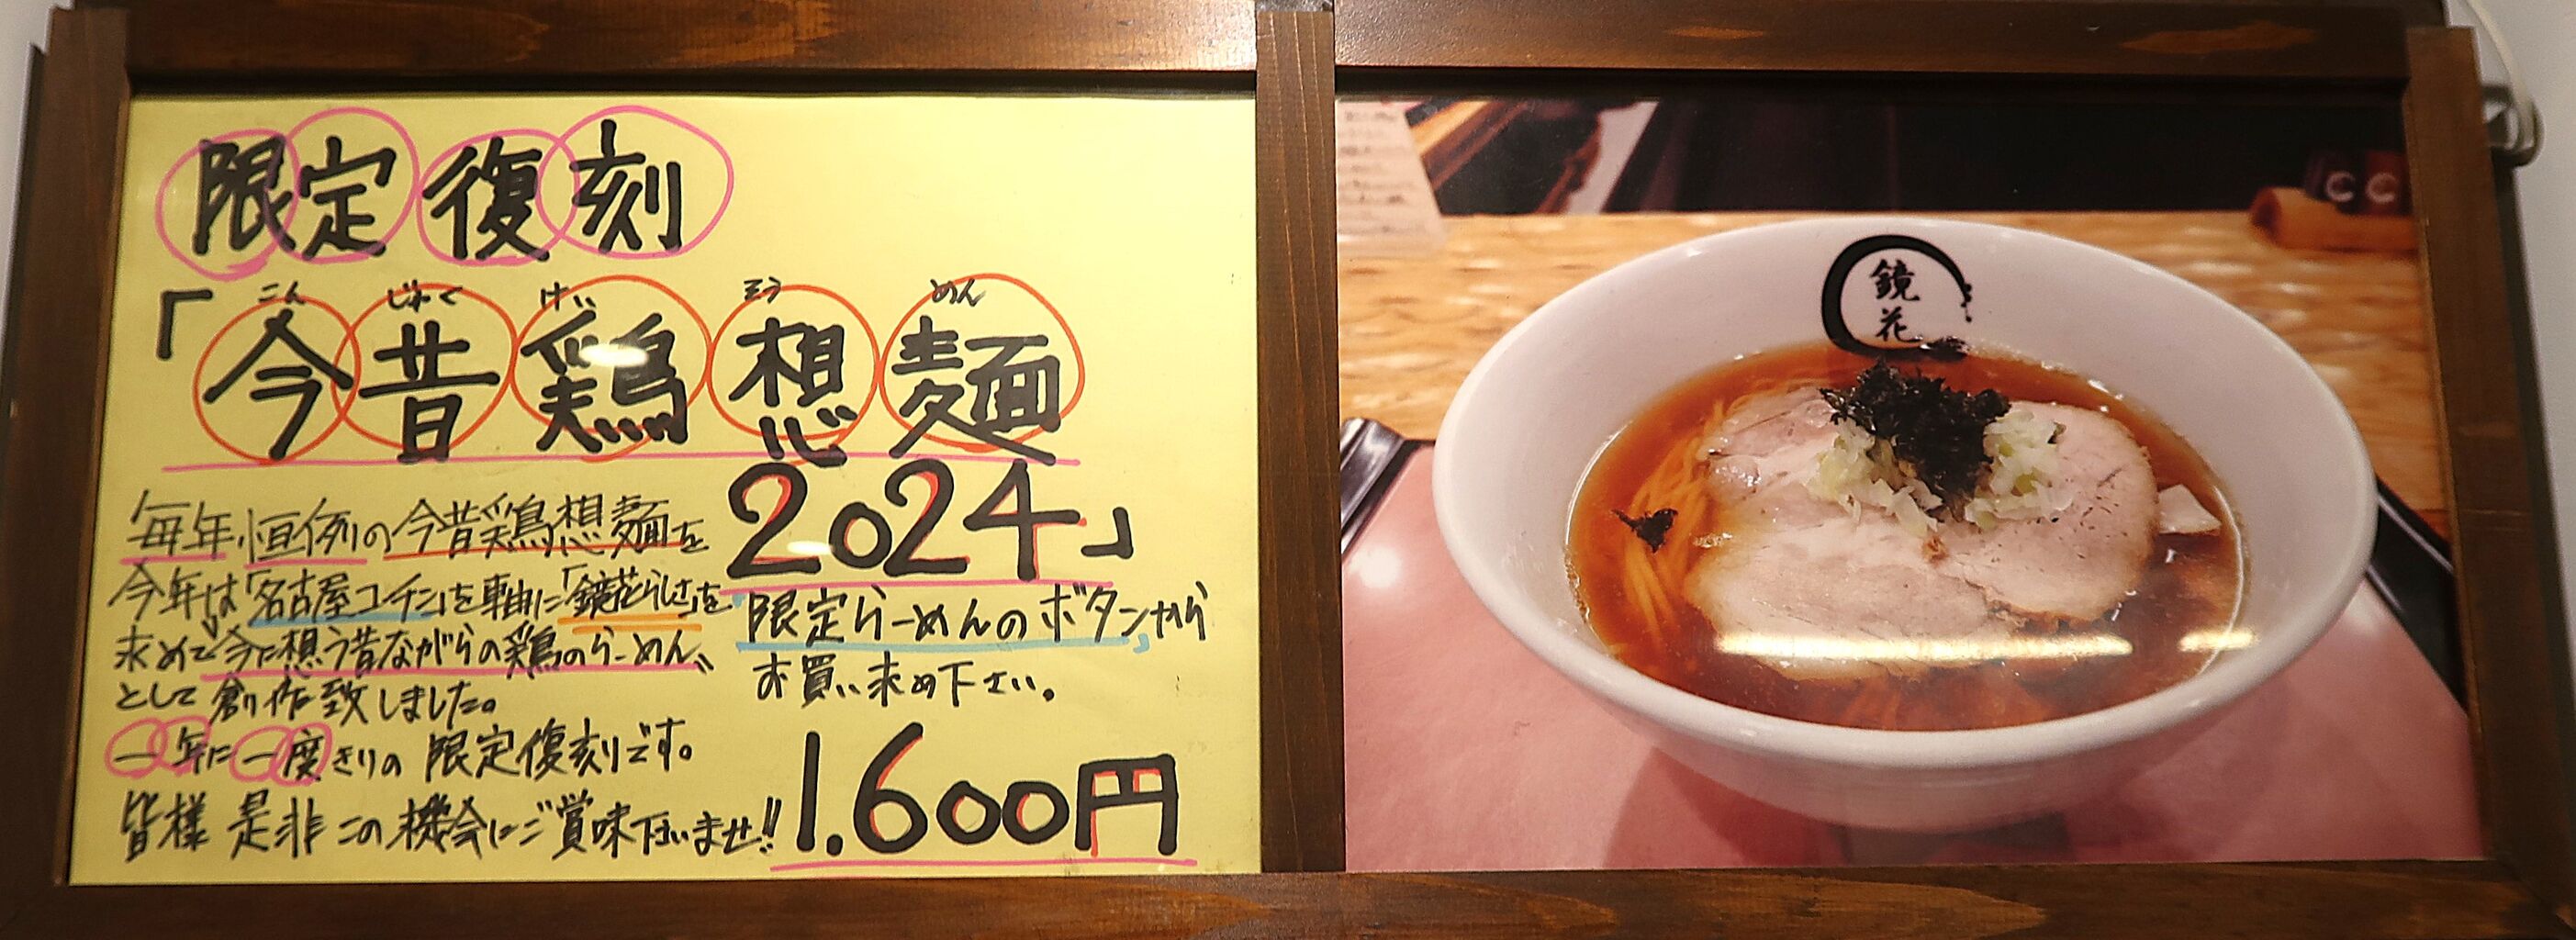 限定復刻
こん じゃく けい そう めん
「今昔鶏想麺
2024」
毎年恒例の今昔鶏想麺を
今年は「名古屋コーチン」を軸に「鏡花らしさ」を
求めて〝今に想う昔ながらの鶏のらーめん〟
として創作致しました。
一年に一度きりの限定復刻です。
皆様 是非この機会にご賞味下さいませ!!
「限定らーめんのボタン」から
お買い求め下さい。
1.600円
鏡
花
CC